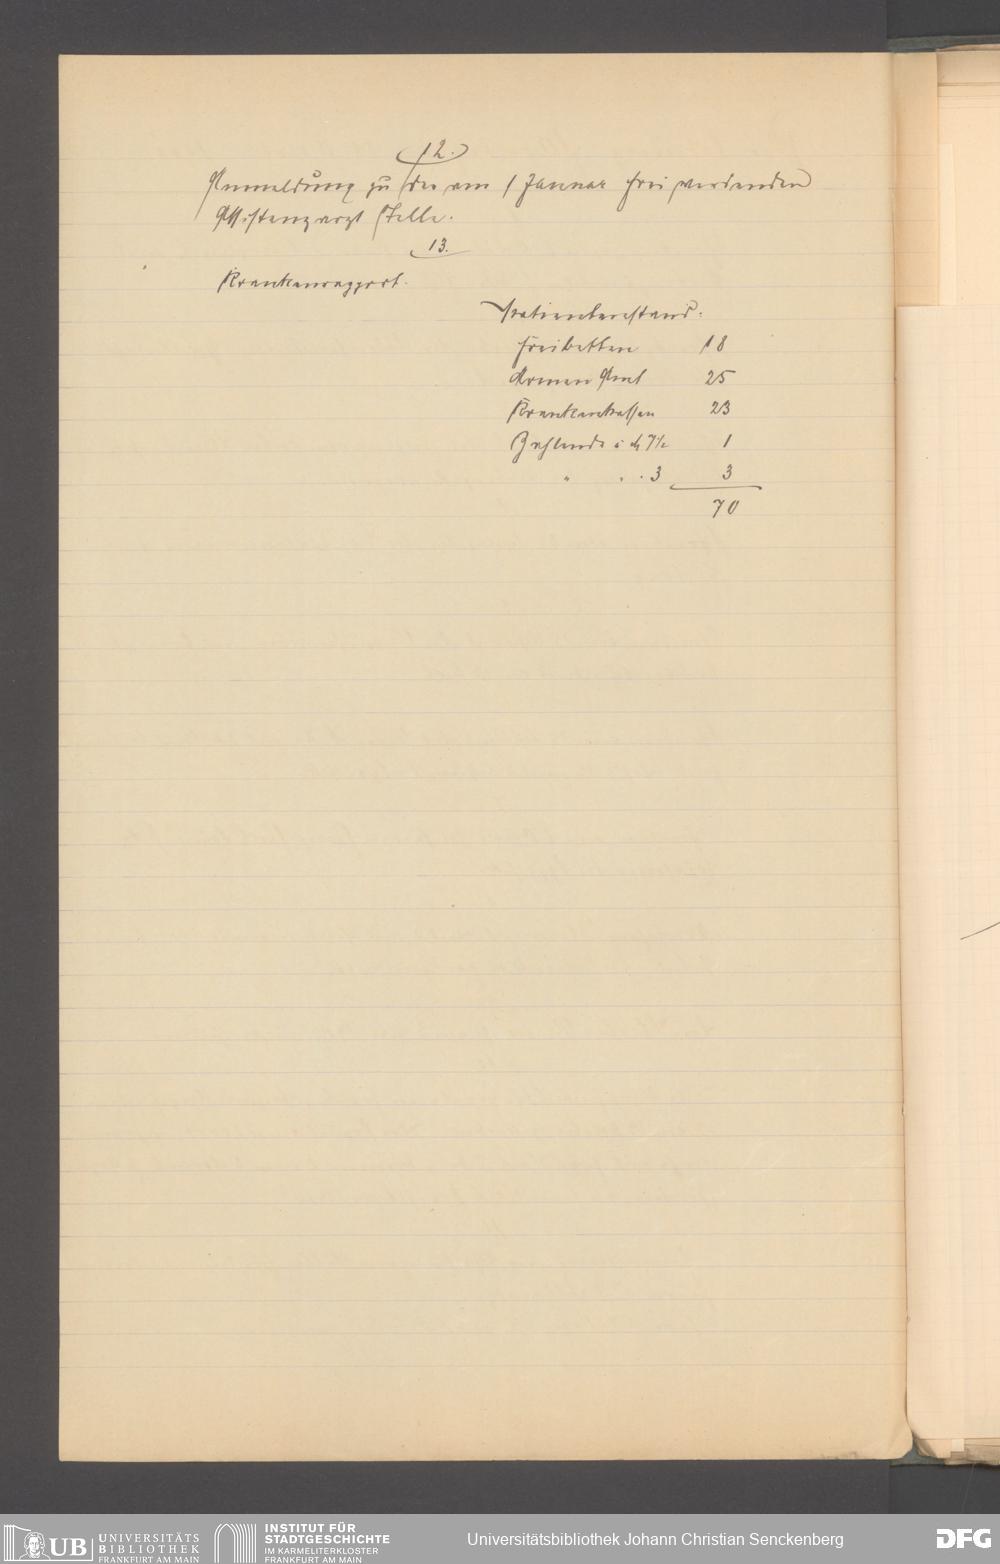 12.
Anmeldung zu der am 1 Januar frei werdenden
Assistenzarzt Stelle.
13.
Krankenrapport.
Patientenbestand:
Freibetten 18
Armen Amt 25
Krankenkassen 23
Zahlende à M 7½ 1
" " " 3 3
70
UB UNIVERSITÄTS
BIBLIOTHEK
FRANKFURT AM MAIN
INSTITUT FÜR
STADTGESCHICHTE
IM KARMELITERKLOSTER
FRANKFURT AM MAIN
Universitätsbibliothek Johann Christian Senckenberg
DFG